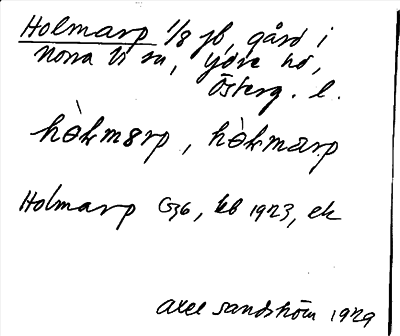 Holmarp 1/8 jb, gård i
Norra Vi sn, Ydre hd,
Österg. l.
hòlmarp, hòlmarp
Holmarp G36, kb 1923, ek
Axel Sandström 1929